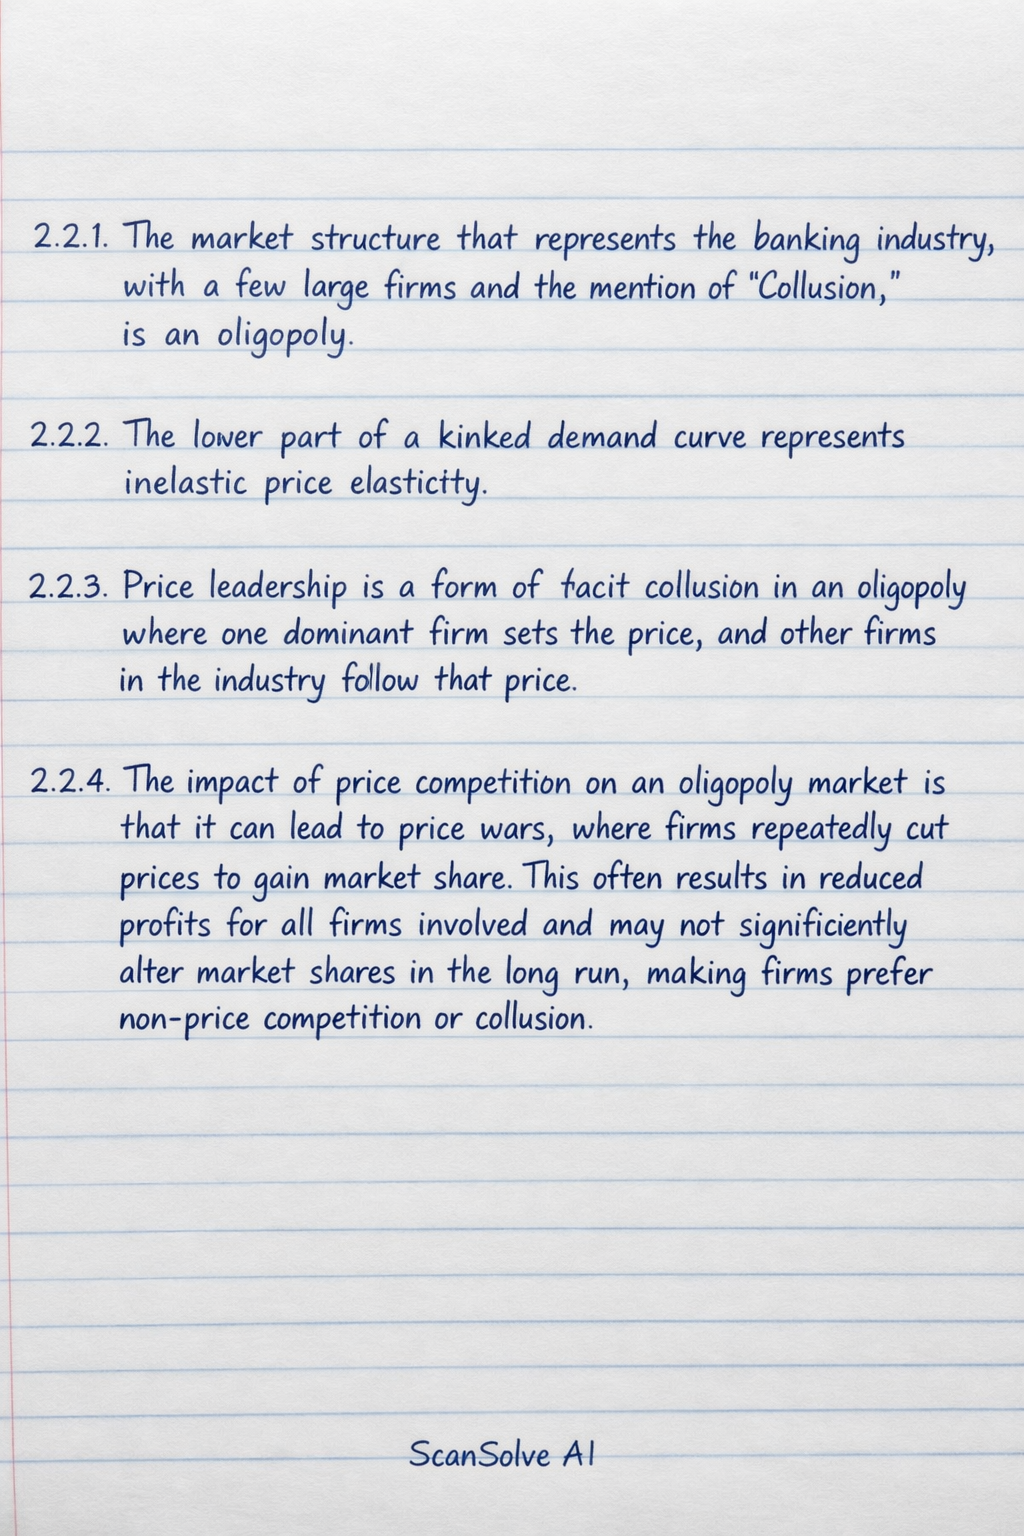 2.2.1. The market structure that represents the banking industry,
with a few large firms and the mention of "Collusion,"
is an oligopoly.
2.2.2. The lower part of a kinked demand curve represents
inelastic price elasticity.
2.2.3. Price leadership is a form of tacit collusion in an oligopoly
where one dominant firm sets the price, and other firms
in the industry follow that price.
2.2.4. The impact of price competition on an oligopoly market is
that it can lead to price wars, where firms repeatedly cut
prices to gain market share. This often results in reduced
profits for all firms involved and may not significiently
alter market shares in the long run, making firms prefer
non-price competition or collusion.
ScanSolve AI